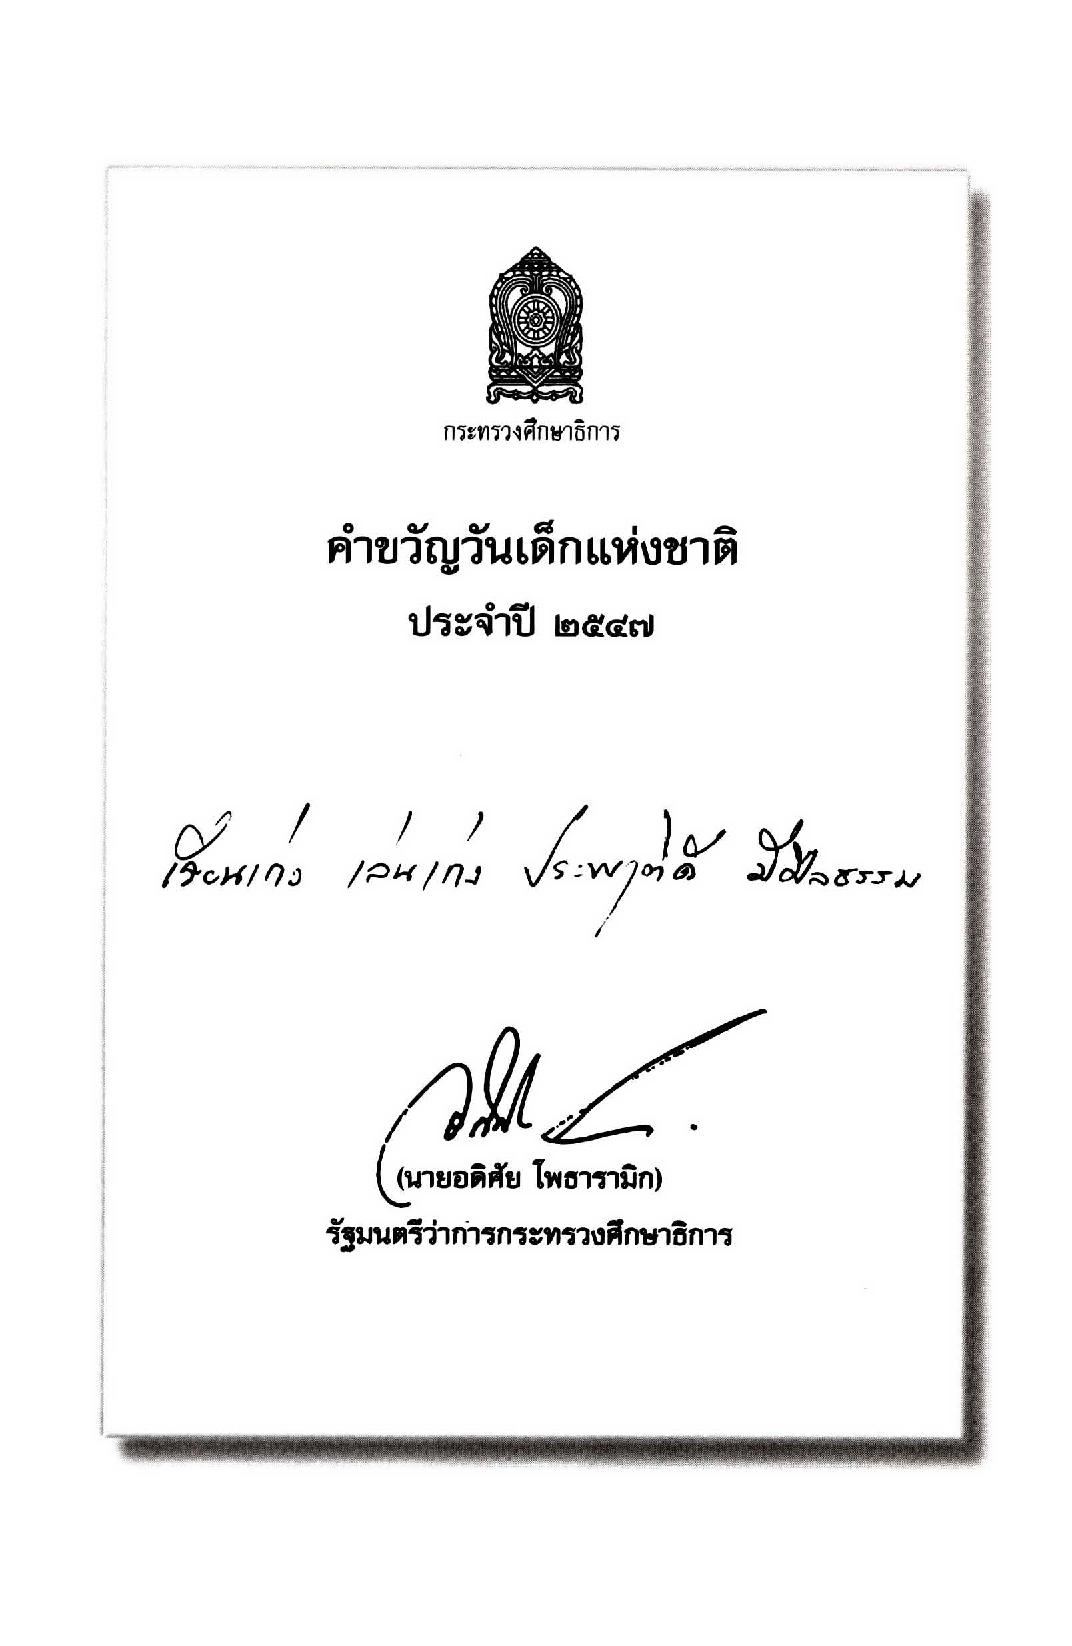 กระทรวงศึกษาธิการ
คำขวัญวันเด็กแห่งชาติ
ประจำปี ๒๕๔๗
เรียนเก่ง เล่นเก่ง ประพฤติดี มีศีลธรรม
(นายอดิศัย โพธารามิก)
รัฐมนตรีว่าการกระทรวงศึกษาธิการ